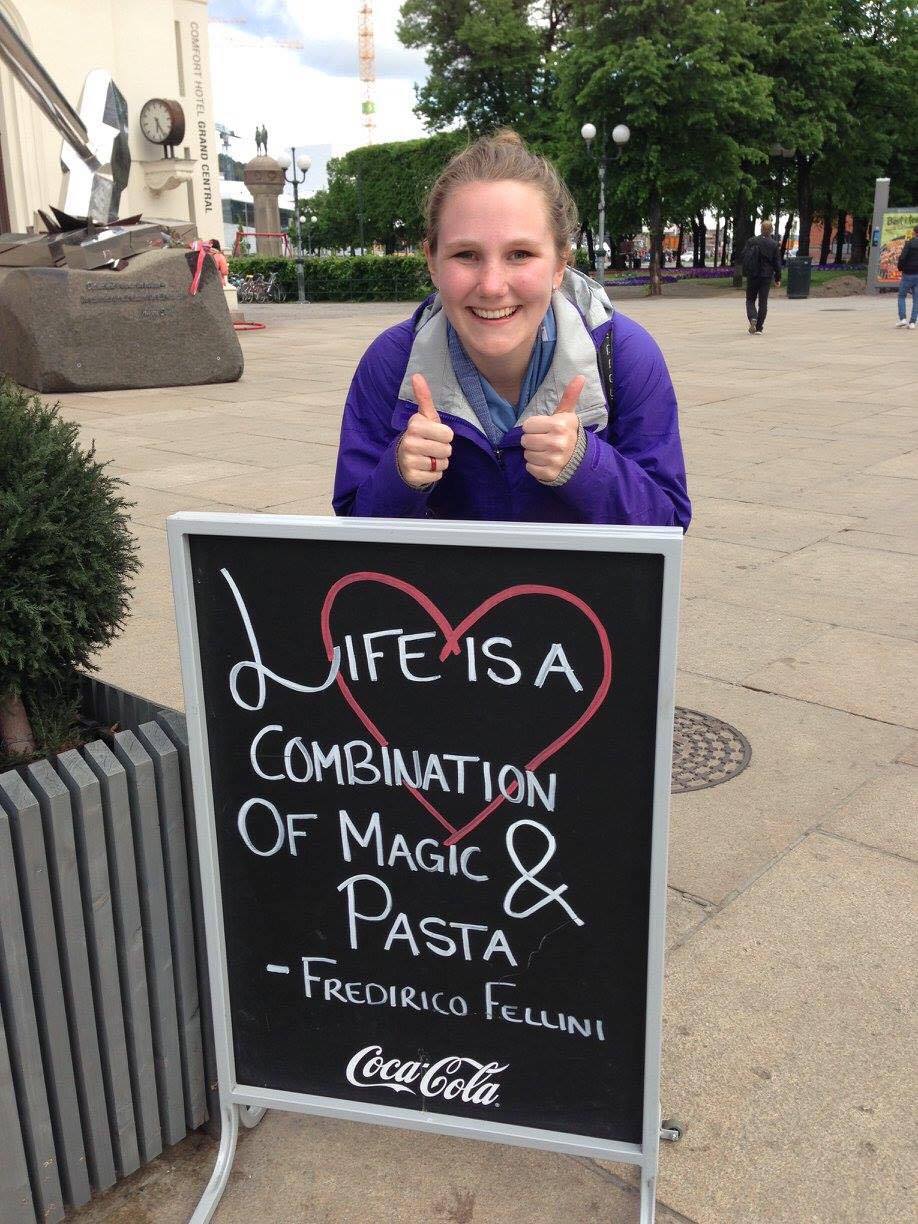 COMFORT HOTEL GRAND CENTRAL
LIFE IS A
COMBINATION
OF MAGIC &
PASTA
- FREDIRICO FELLINI
Coca-Cola